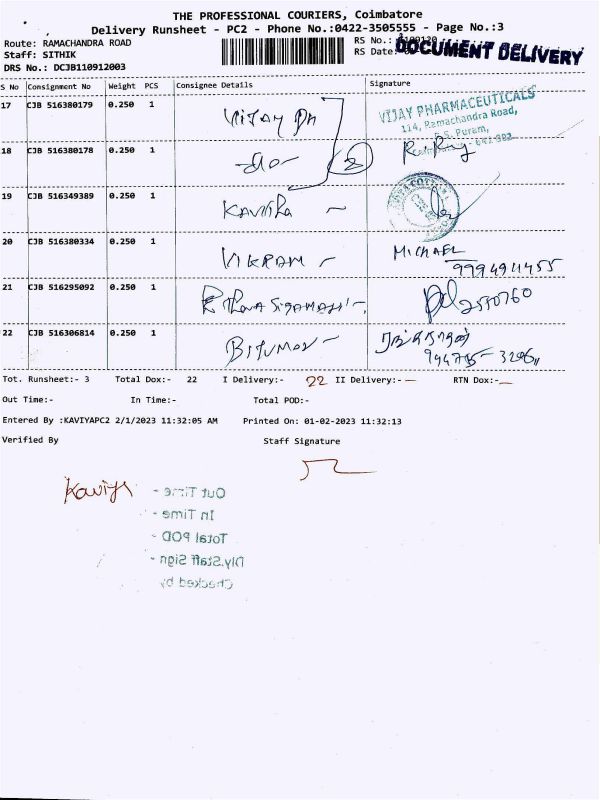 THE PROFESSIONAL COURIERS, Coimbatore
Delivery Runsheet - PC2 - Phone No.:0422-3505555 - Page No.:3
Route: RAMACHANDRA ROAD RS No.:
Staff: SITHIK RS Date:
DOCUMENT DELIVERY
DRS No.: DCJB110912003
S No Consignment No Weight PCS Consignee Details Signature
17 CJB 516380179 0.250 1 VIJAY PH
VIJAY PHARMACEUTICALS
114, Ramachandra Road,
R.S. Puram,
18 CJB 516380178 0.250 1 -do-
19 CJB 516349389 0.250 1 KAVITHA -
20 CJB 516380334 0.250 1 VIKRAM - MICHAEL
9994911455
21 CJB 516295092 0.250 1
22 CJB 516306814 0.250 1
Tot. Runsheet:- 3 Total Dox:- 22 I Delivery:- 22 II Delivery:- - RTN Dox:- -
Out Time:- In Time:- Total POD:-
Entered By :KAVIYAPC2 2/1/2023 11:32:05 AM Printed On: 01-02-2023 11:32:13
Verified By Staff Signature
Kaviya
Out Time -
In Time -
Total POD -
Dly.Staff Sign -
Checked by